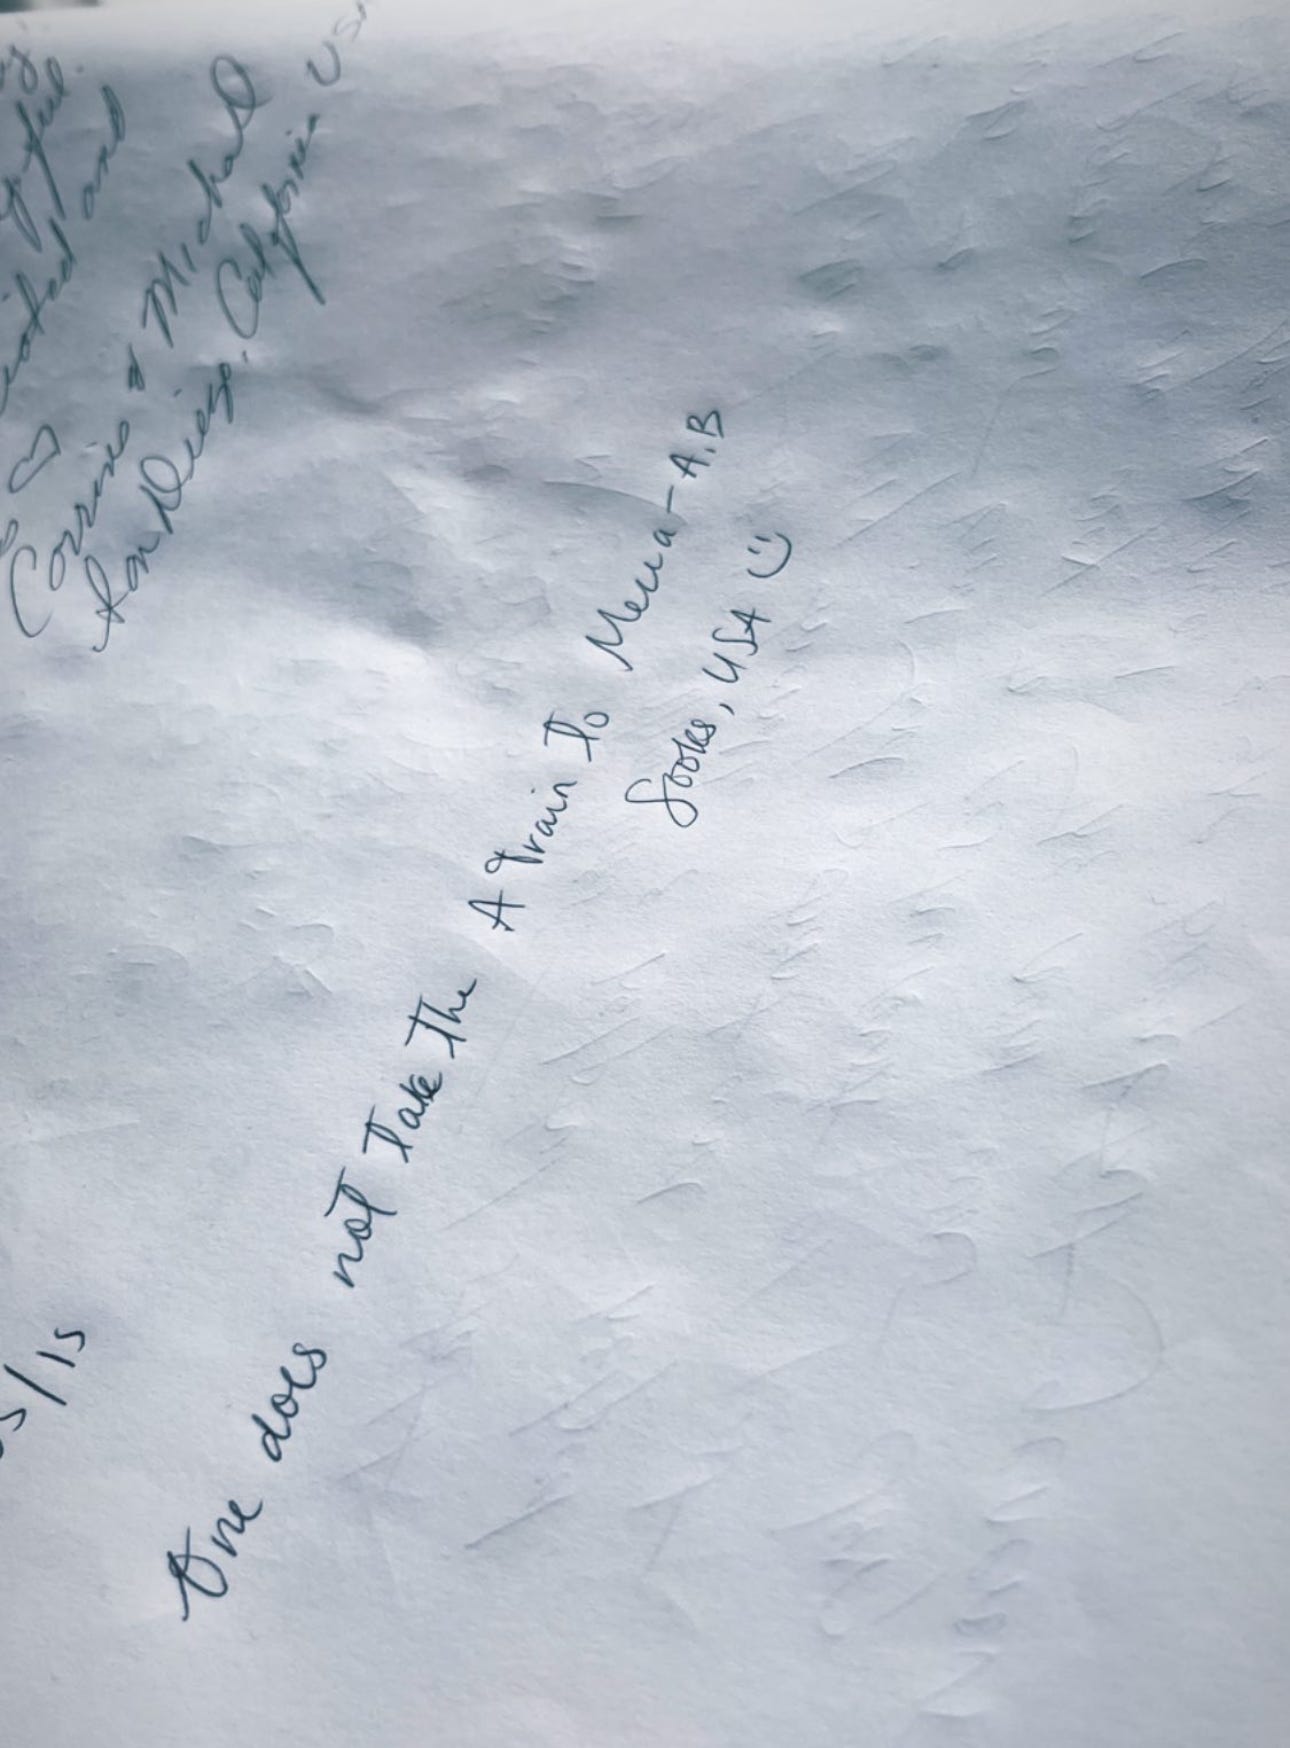 and
Corrine & Michael
San Diego, California USA
5/15
One does not take the A Train to Mecca - A.B
USA :)